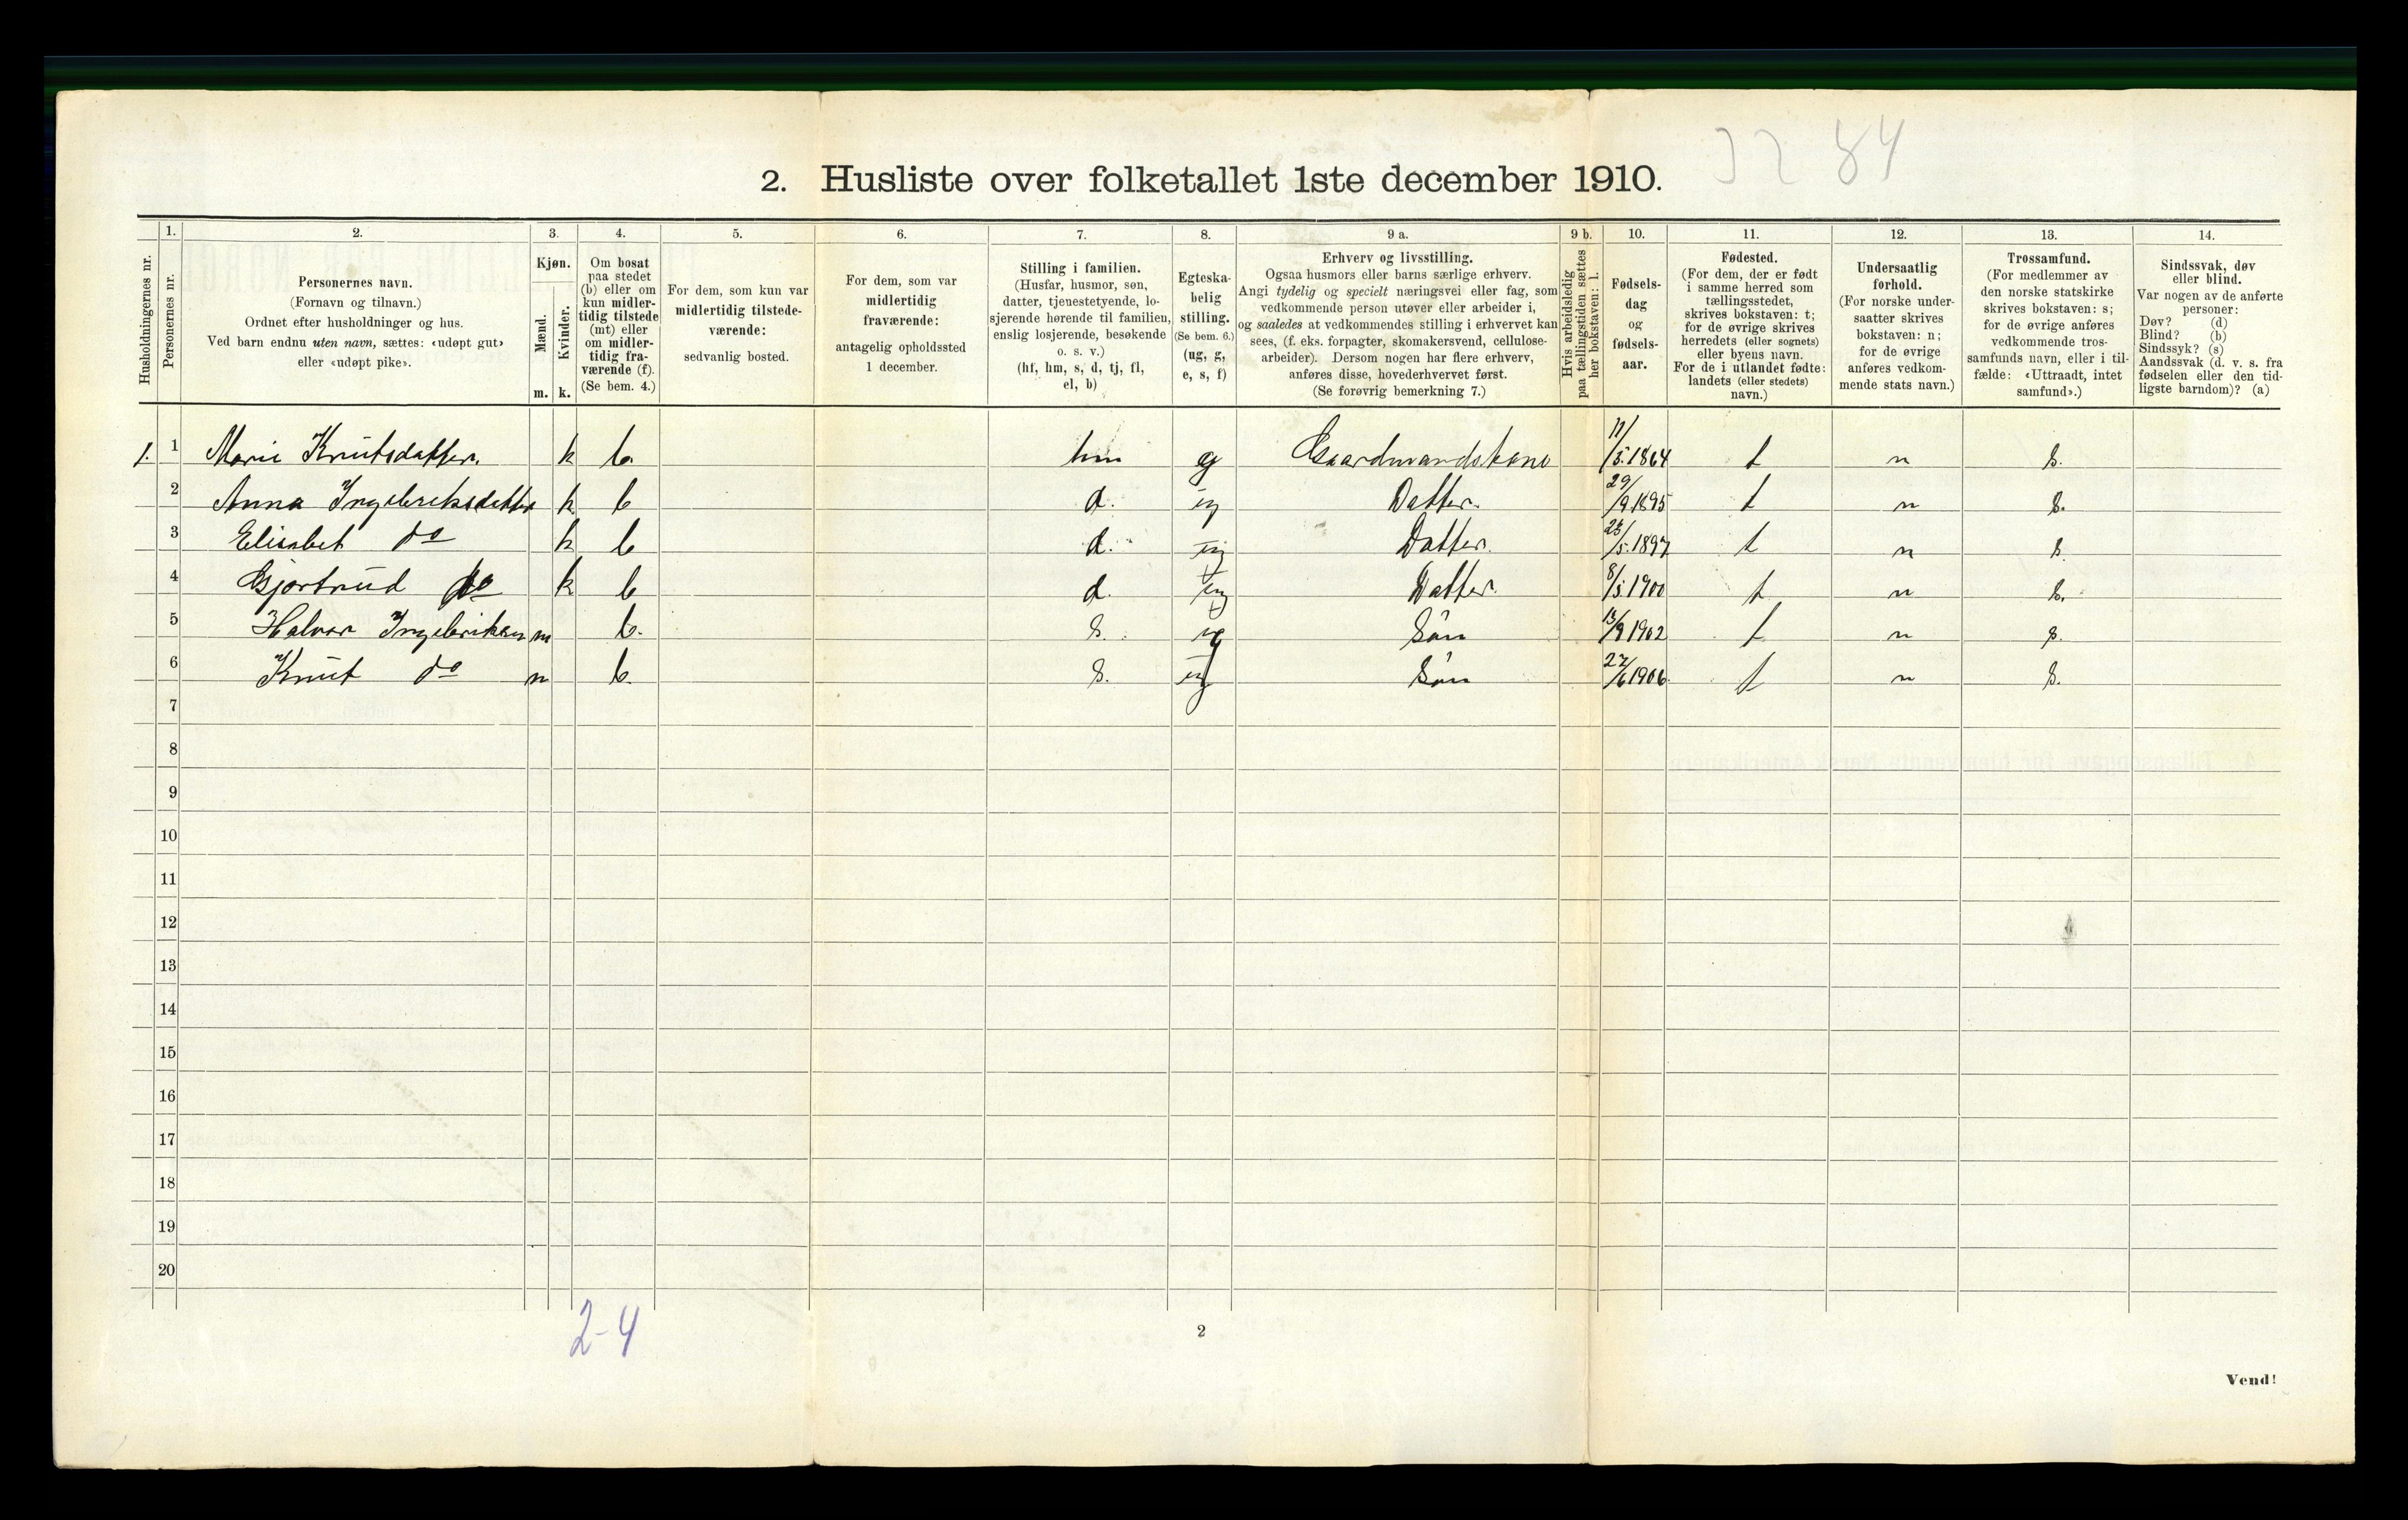 32 84
2. Husliste over folketallet 1ste december 1910.
Husholdningernes nr.
1.
Personernes nr.
2.
Personernes navn.
(Fornavn og tilnavn.)
Ordnet efter husholdninger og hus.
Ved barn endnu uten navn, sættes: «udøpt gut»
eller «udøpt pike».
3.
Kjøn.
Mænd.
Kvinder.
m. k.
4.
Om bosat
paa stedet
(b) eller om
kun midler-
tidig tilstede
(mt) eller
om midler-
tidig fra-
værende (f).
(Se bem. 4.)
5.
For dem, som kun var
midlertidig tilstede-
værende:
sedvanlig bosted.
6.
For dem, som var
midlertidig
fraværende:
antagelig opholdssted
1 december.
7.
Stilling i familien.
(Husfar, husmor, søn,
datter, tjenestetyende, lo-
sjerende hørende til familien,
enslig losjerende, besøkende
o. s. v.)
(hf, hm, s, d, tj, fl,
el, b)
8.
Egteska-
belig
stilling.
(Se bem. 6.)
(ug, g,
e, s, f)
9 a.
Erhverv og livsstilling.
Ogsaa husmors eller barns særlige erhverv.
Angi tydelig og specielt næringsvei eller fag, som
vedkommende person utøver eller arbeider i,
og saaledes at vedkommendes stilling i erhvervet kan
sees, (f. eks. forpagter, skomakersvend, cellulose-
arbeider). Dersom nogen har flere erhverv,
anføres disse, hovederhvervet først.
(Se forøvrig bemerkning 7.)
9 b.
Hvis arbeidsledig
paa tællingstiden sættes
her bokstaven: l.
10.
Fødsels-
dag
og
fødsels-
aar.
11.
Fødested.
(For dem, der er født
i samme herred som
tællingsstedet,
skrives bokstaven: t;
for de øvrige skrives
herredets (eller sognets)
eller byens navn.
For de i utlandet fødte:
landets (eller stedets)
navn.)
12.
Undersaatlig
forhold.
(For norske under-
saatter skrives
bokstaven: n;
for de øvrige
anføres vedkom-
mende stats navn.)
13.
Trossamfund.
(For medlemmer av
den norske statskirke
skrives bokstaven: s;
for de øvrige anføres
vedkommende tros-
samfunds navn, eller i til-
fælde: «Uttraadt, intet
samfund».)
14.
Sindssvak, døv
eller blind.
Var nogen av de anførte
personer:
Døv? (d)
Blind? (b)
Sindssyk? (s)
Aandssvak (d. v. s. fra
fødselen eller den tid-
ligste barndom)? (a)
1. 1 Marie Knutsdatter. k b. hm g Gaardmandskone 11/5.1864 t n s.
2 Anna Ingebriksdatter k b d. ug Datter. 29/9.1895 t n s.
3 Elisabet do k b d. ug Datter. /5.1897 t n s.
4 Gjertrud do k b d. ug Datter. 8/5.1900 t n s.
5 Halvor Ingebriksen m b. s. ug Sön /9 1902 t n s.
6 Knut do m b. s. ug Sön 27/6 1906. t n s.
7
8
9
10
11
12
13
14
15
16
17
18
19
20
2-4
2
Vend!